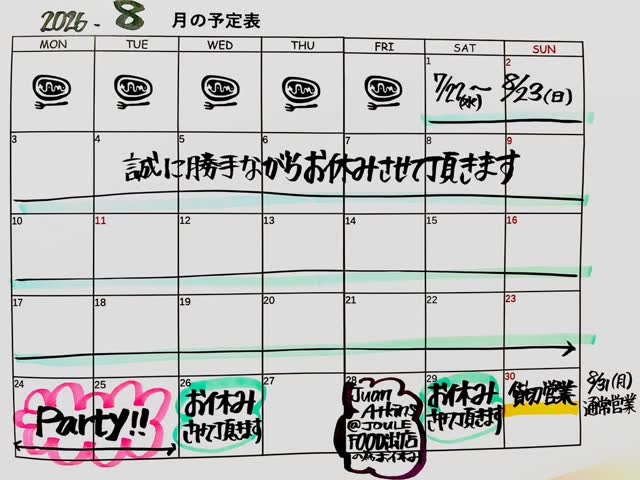 2026 - 8 月の予定表
MON TUE WED THU FRI SAT SUN
1 2
7/22(水)〜 8/23(日)
3 4 5 6 7 8 9
誠に勝手ながらお休みさせて頂きます
10 11 12 13 14 15 16
17 18 19 20 21 22 23
24 25 26 27 28 29 30
Party!!
お休み
させて頂きます
Juan
Atkins
@JOULE
FOOD出店
の為お休み
お休み
させて頂きます
貸切営業
8/31(月)
通常営業